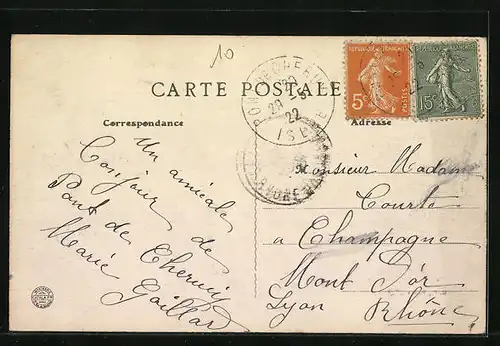 10
CARTE POSTALE
Correspondance
Adresse
PONT
20
22
ISERE
RHONE
REPUBLIQUE FRANÇAISE
5c
POSTES
REPUBLIQUE FRANÇAISE
15c
Un amical
Bonjour de
Pont de Cheruy
Marie Gaillard
Monsieur Madame
Courte
a Champagne
Mont d'Or
Lyon Rhône